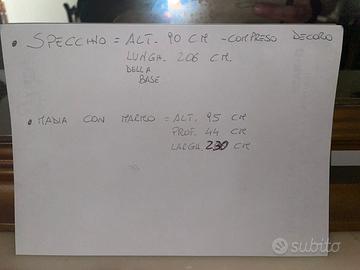 • SPECCHIO = ALT. 90 CM - COMPRESO DECORO
LUNGH. 206 CM.
DELLA
BASE
• MADIA CON MARMO = ALT. 95 CM
PROF. 44 CM
LARGH. 230 CM
subito